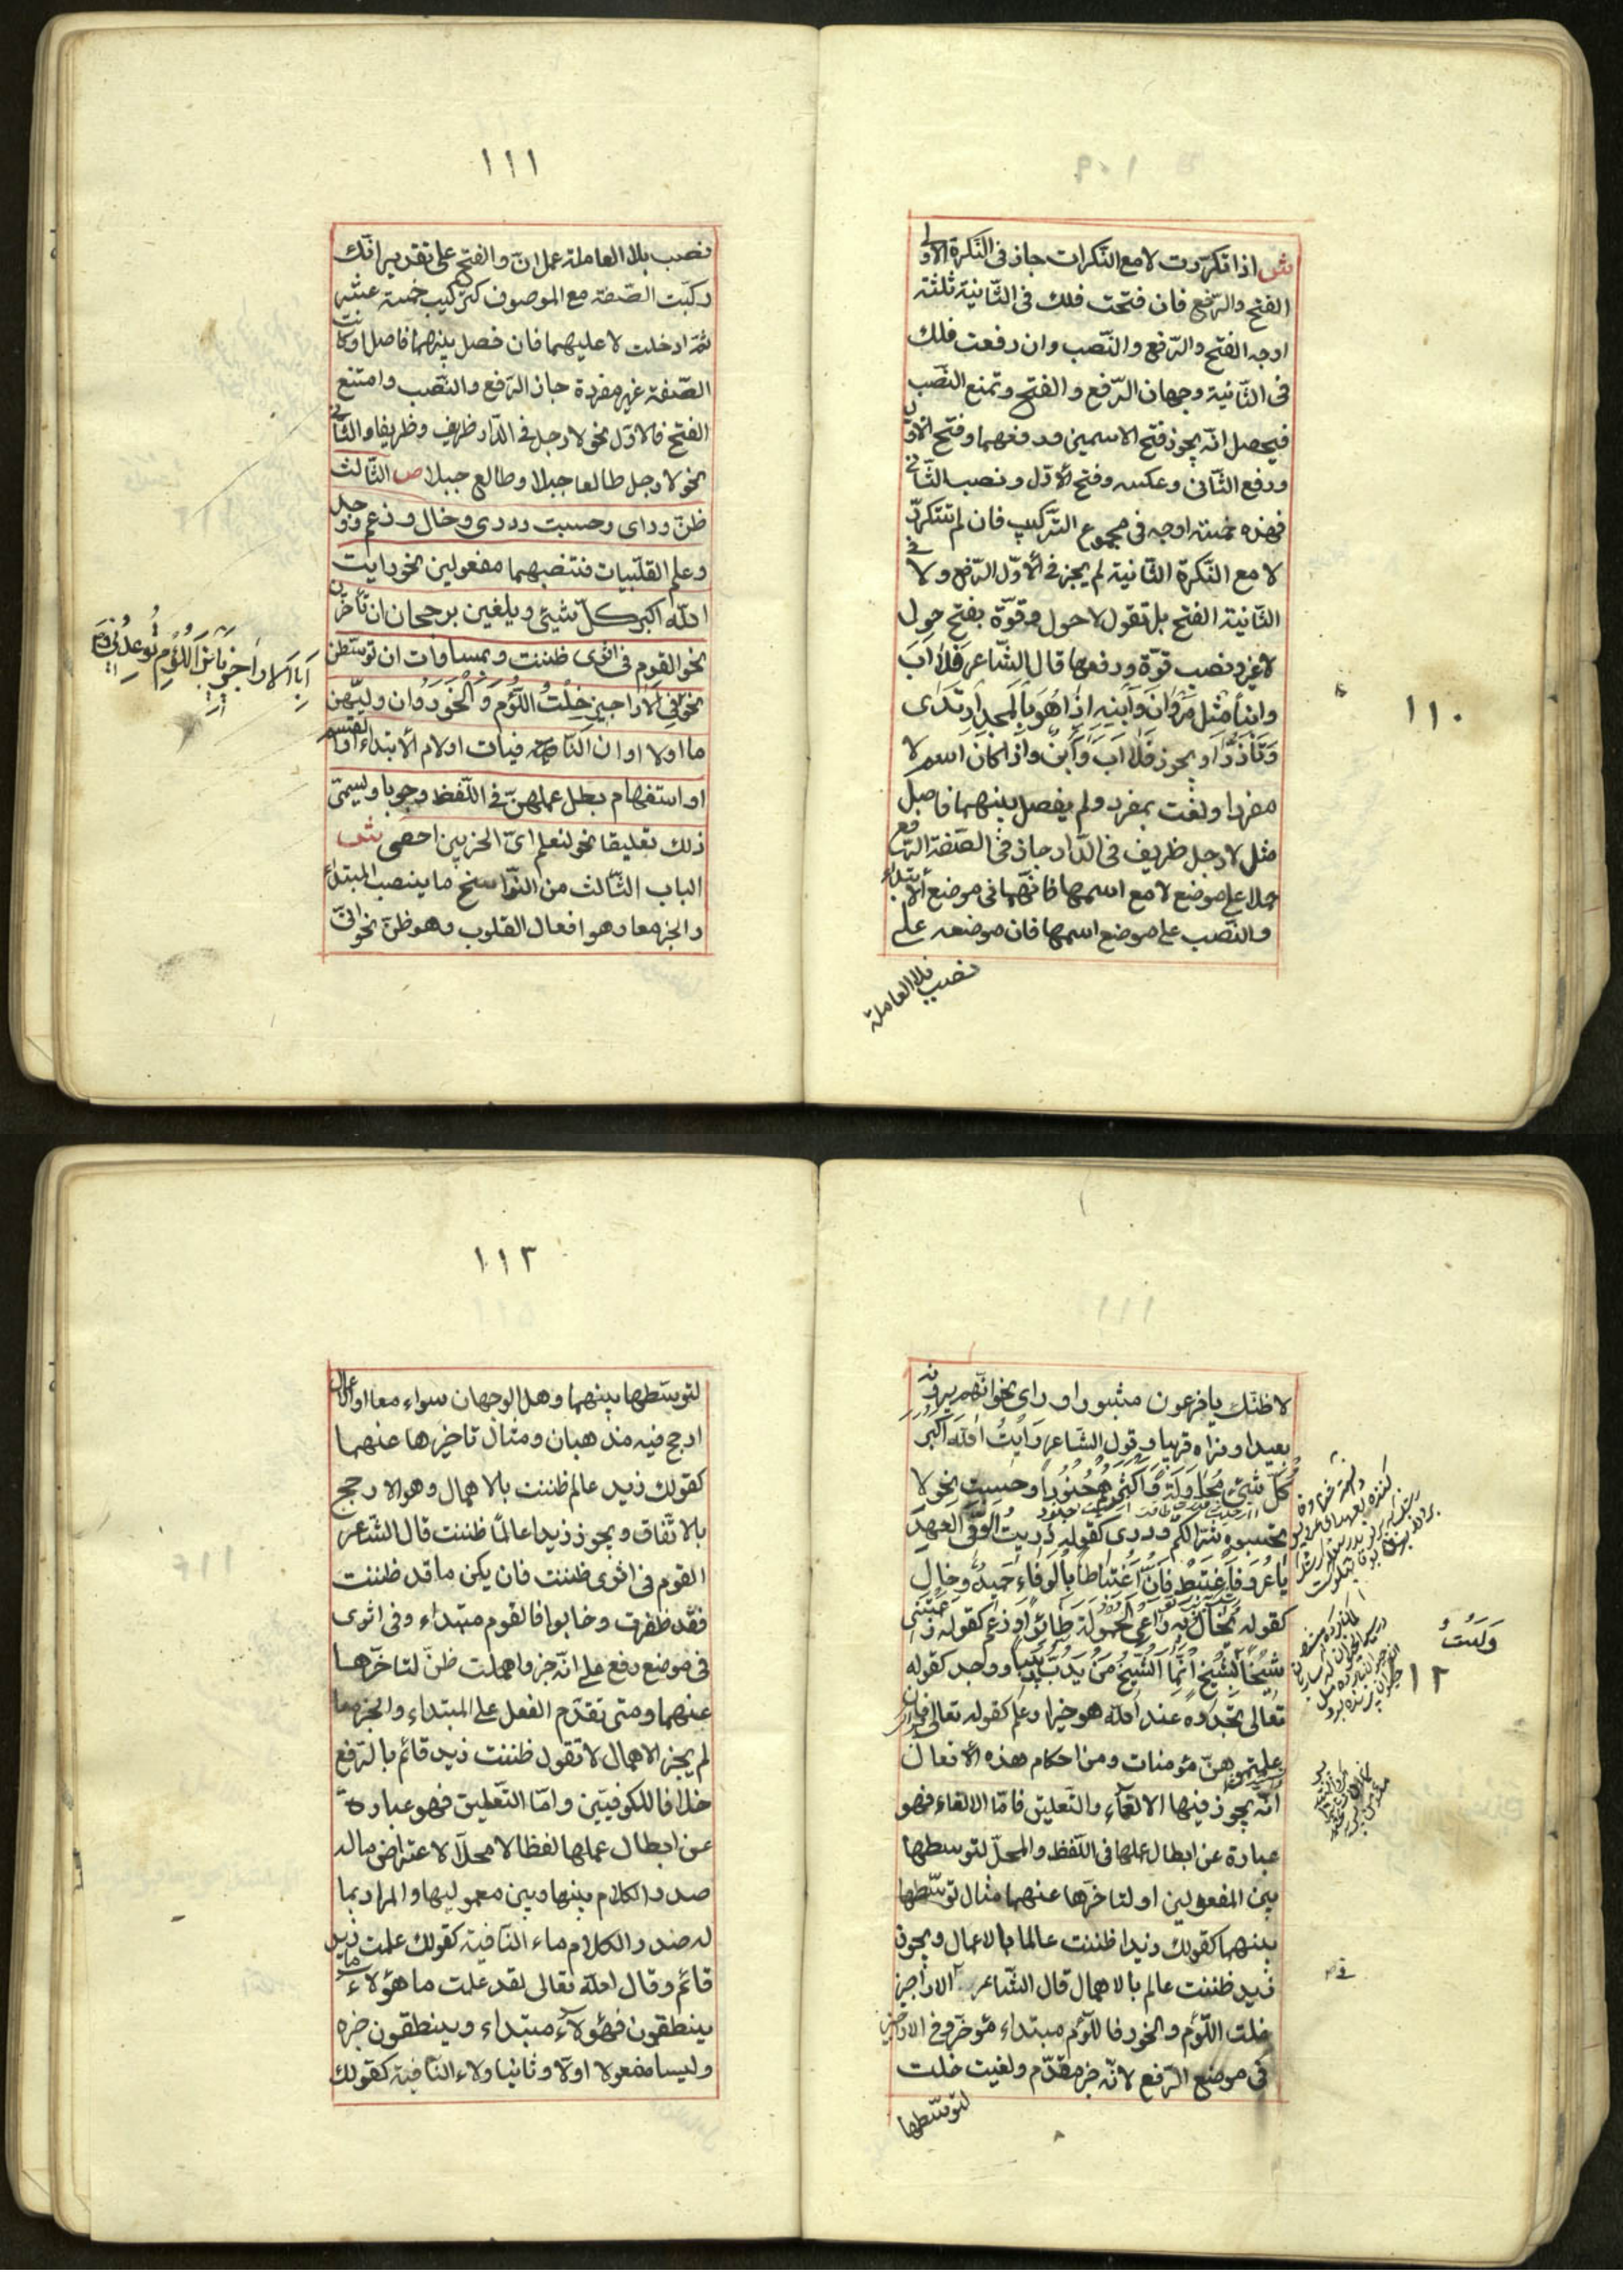 ش اذا تكررت لا مع النكرات جاز فى النكرة الاولى
الفتح والرفع فان فتحت فلك فى الثانية ثلثة
اوجه الفتح والرفع والنصب وان رفعت فلك
فى الثانية وجهان الرفع والفتح وتمنع النصب
فيحصل انه يجوز فتح الاسمين ورفعهما وفتح الاول
ورفع الثانى وعكسه وفتح الاول ونصب الثانى
فهذه خمسة اوجه فى مجموع التركيب فان لم تتكرر
لا مع النكرة الثانية لم يجز فى الاول الرفع ولا فى
الثانية الفتح بل تقول لا حول وقوة بفتح حول
لا غير ونصب قوة ورفعها قال الشاعر فَلَا اَبَ
وابناً مثل مَرْوَانَ وَابْنِهِ اِذَا هُوَ بِالْمَجْدِ ارْتَدَى
وَتَأَزَّرَا ويجوز فَلَا اَبَ وَابْنٌ واذا كان اسم لا
مفردا ونعت بمفرد ولم يفصل بينهما فاصل
مثل لا رجل ظريف فى الدار جاز فى الصفة الرفع
حملا على موضع لا مع اسمها فانهما فى موضع الابتداء
والنصب على موضع اسمها فان موضعه على
نصب بلا العاملة
١١٠
١١١
نصب بلا العاملة عمل انّ والفتح على تقدير انك
ركبت الصفة مع الموصوف كتركيب خمسة عشر
ثمّ ادخلت لا عليهما فان فصل بينهما فاصل او كانت
الصفة غير مفردة جاز الرفع والنصب وامتنع
الفتح فالاول نحو لا رجل فى الدار ظريف وظريفا والثانى
نحو لا رجل طالعا جبلا وطالع جبلا ص الثالث
ظنّ وراى وحسبت ودرى وخال وزعم ووجد
وعلم القلبيات فتنصبهما مفعولين نحو رايت
الله اكبر كل شيئ ويلغين برجحان ان تأخرن
نحو القوم فى اثرى ظننت وبمساوات ان توسطن
نحو وَفِى الْاَرَاجِيزِ خِلْتُ اللُّؤْمُ وَالْخَوَرُ وان وليهن
ما او لا او ان النافية فيات او لام الابتداء او القسم
او استفهام بطل عملهن فى اللفظ وجوبا ويسمى
ذلك تعليقا نحو لنعلم اىّ الحزبين احصى ش
الباب الثالث من النواسخ ما ينصب المبتداء
والخبر معا وهو افعال القلوب وهو ظن نحو انّى
لاظنّك يا فرعون مثبورا وراى نحو انهم يرونه
بعيدا ونراه قريبا وقول الشاعر رَاَيْتُ اللهَ اَكْبَرَ
كُلِّ شَيْئٍ مُحَاوَلَةً وَاَكْثَرَهُمْ جُنُودًا وحسبت نحو لا
تحسبوه شرا لكم ودرى كقوله دُرِيتَ الْوَفِىَّ الْعَهْدِ
يَا عُرْوَ فَاغْتَبِطْ فَاِنَّ اغْتِبَاطًا بِالْوَفَاءِ حَمِيدٌ وخال
كقوله يُخَالُ بِهِ رَاعِى الْحَمُولَةِ طَائِرًا وزعم كقوله زَعَمَتْنِى
شَيْخًا وَلَسْتُ بِشَيْخٍ اِنَّمَا الشَّيْخُ مَنْ يَدُبُّ دَبِيبًا ووجد كقوله
تعالى تجدوه عند الله هو خيرا وعلم كقوله تعالى فان
علمتموهنّ مؤمنات ومن احكام هذه الافعال
انّه يجوز فيها الالغاء والتعليق فامّا الالغاء فهو
عبارة عن ابطال عملها فى اللفظ والمحلّ لتوسطها
بين المفعولين او لتاخرها عنهما مثال توسطها
بينهما كقولك زيدا ظننت عالما بالاعمال ويجوز
زيد ظننت عالم بالاهمال قال الشاعر الاراجيز
خلت اللؤم والخور فاللؤم مبتداء مؤخر وفى الاراجيز
فى موضع الرفع لانّه خبر مقدّم ولغيت خلت
لتوسّطها
وَلَسْتُ
١١٢
١١٣
لتوسطها بينهما وهل الوجهان سواء معا او الاعمال
ارجح فيه مذهبان ومثال تاخيرها عنهما
كقولك زيد عالم ظننت بالاهمال وهو الارجح
بالاتّفاق ويجوز زيدا عالمًا ظننت قال الشاعر
القوم فى اثرى ظننت فان يكن ما قد ظننت
فقد ظفرت وخابوا فالقوم مبتداء وفى اثرى
فى موضع رفع على انّه خبر واهملت ظنّ لتاخّرها
عنهما ومتى تقدّم الفعل على المبتداء والخبر معا
لم يجز الاهمال لا تقول ظننت زيد قائم بالرفع
خلافا للكوفيّين وامّا التّعليق فهو عبارة
عن ابطال عملها لفظا لا محلّا لاعتراض ماله
صدر الكلام بينها وبين معموليها والمراد بما
له صدر الكلام ماء النّافية كقولك علمت ما زيد
قائم وقال الله تعالى لقد علمت ما هؤلاء
ينطقون فهؤلاء مبتداء وينطقون خبره
وليسا مفعولا اولا وثانيا ولاء النّافية كقولك